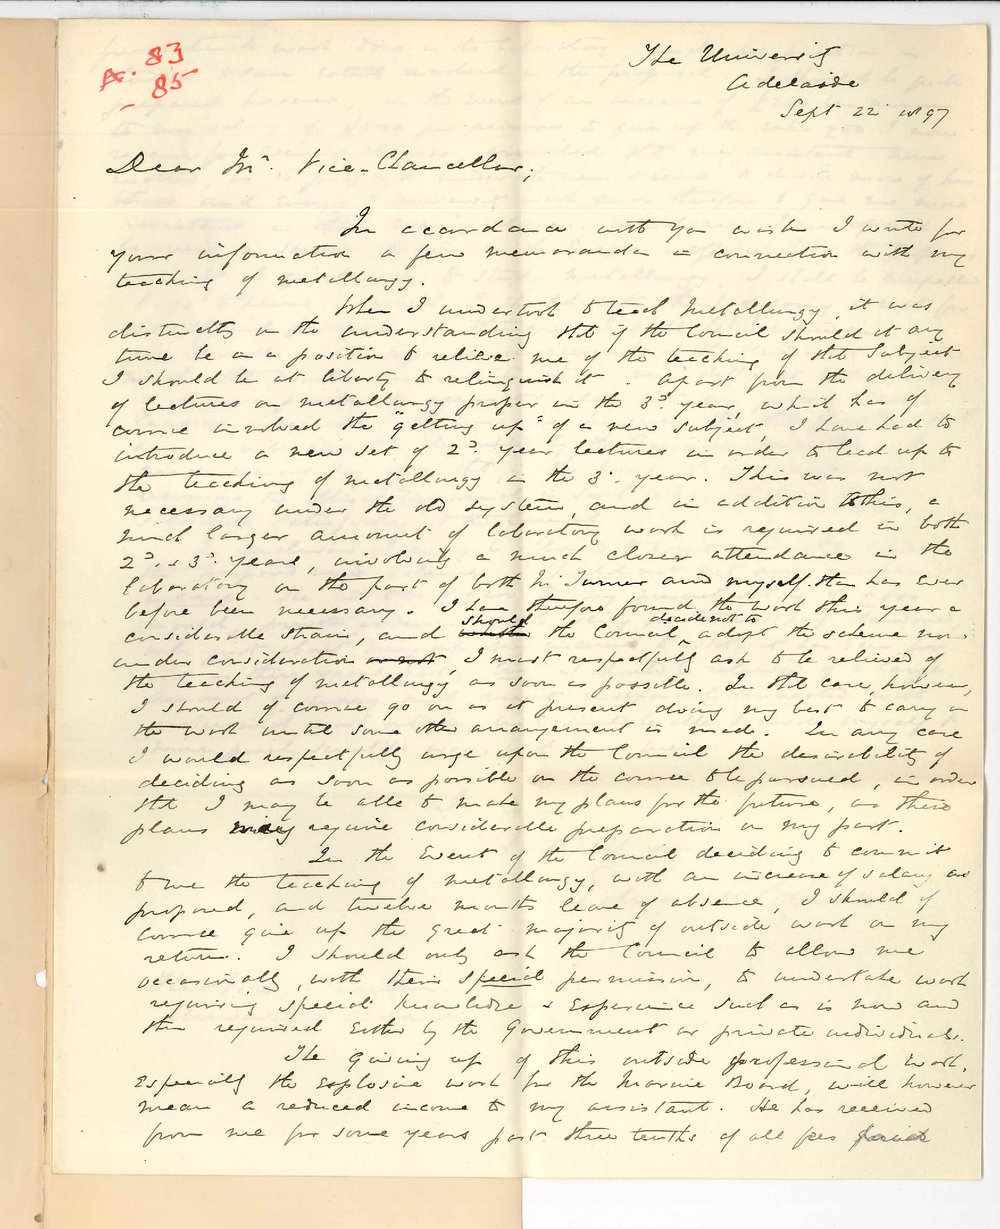 A. 83
- 85
The University
Adelaide
Sept 22 1897
Dear Mr. Vice-Chancellor;
In accordance with your wish I write for
your information a few memoranda in connection with my
teaching of metallurgy.
When I undertook to teach Metallurgy, it was
distinctly on the understanding that if the Council should at any
time be in a position to relieve me of the teaching of that subject
I should be at liberty to relinquish it. Apart from the delivery
of lectures on metallurgy proper in the 3d. year, which has of
course involved the "getting up" of a new subject, I have had to
introduce a new set of 2d. year lectures in order to lead up to
the teaching of metallurgy in the 3d. year. This was not
necessary under the old system, and in addition to this, a
much larger amount of laboratory work is required in both
2d. & 3d. years, involving a much closer attendance in the
laboratory on the part of both Mr. Turner and myself than has ever
before been necessary. I have therefore found the work this year a
considerable strain, and should the Council decide not to adopt the scheme now
under consideration or not, I must respectfully ask to be relieved of
the teaching of metallurgy as soon as possible. In that case, however,
I should of course go on as at present doing my best to carry on
the work until some other arrangement is made. In any case
I would respectfully urge upon the Council the desirability of
deciding as soon as possible on the course to be pursued, in order
that I may be able to make my plans for the future, as these
plans may require considerable preparation on my part.
In the event of the Council deciding to commit
to me the teaching of metallurgy, with an increase of salary as
proposed, and twelve months leave of absence, I should of
course give up the great majority of outside work on my
return. I should only ask the Council to allow me
occasionally, with their special permission, to undertake work
requiring special knowledge & experience such as is now and
then required either by the Government or private individuals.
The giving up of this outside professional work,
especially the explosive work for the Marine Board, will however
mean a reduced income to my assistant. He has received
from me for some years past three tenths of all fees paid